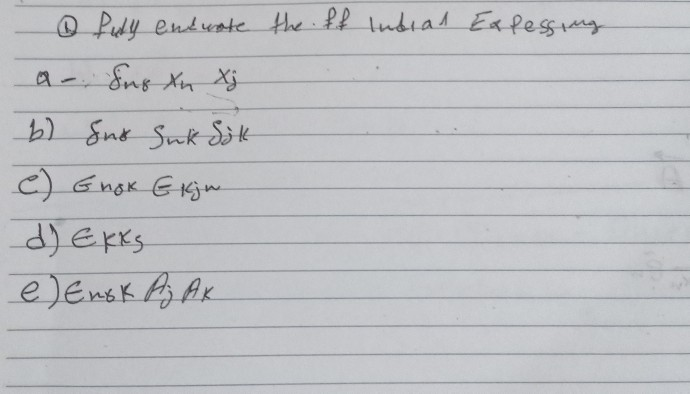 ① fully evaluate the ff Indial Expessing
a - δnj xn xj
b) δnj δnk δjk
c) ϵnjk ϵkjn
d) ϵkkj
e) ϵnjk Aj Ak